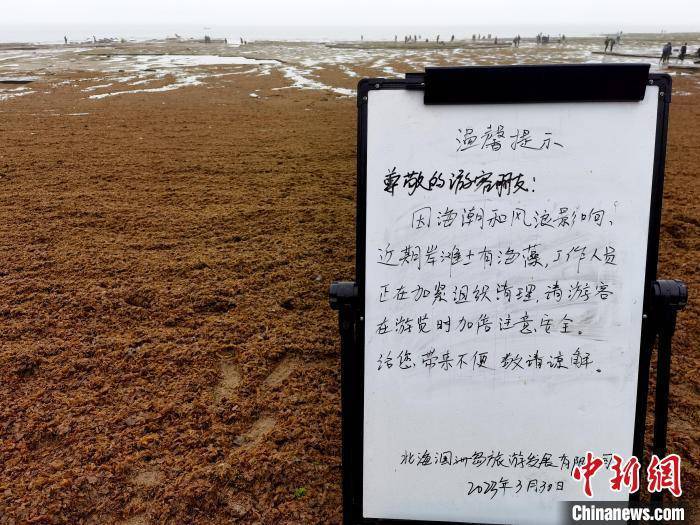 温馨提示
尊敬的游客朋友：
因海潮和风浪影响、
近期岸滩上有海藻，工作人员
正在加紧组织清理，请游客
在游览时加倍注意安全。
给您带来不便 敬请谅解。
北海涠洲岛旅游发展有限公司
2023年3月30日
中新网
Chinanews.com